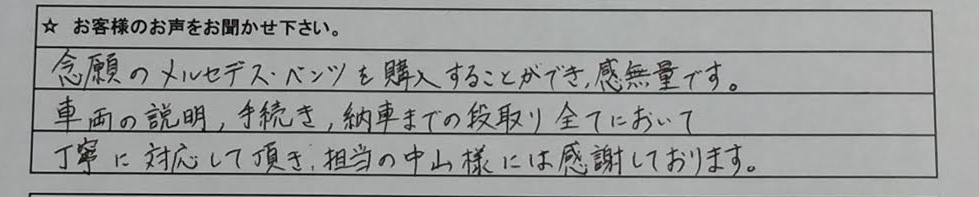 ☆ お客様のお声をお聞かせ下さい。
念願のメルセデス・ベンツを購入することができ,感無量です。
車両の説明,手続き,納車までの段取り全てにおいて
丁寧に対応して頂き,担当の中山様には感謝しております。